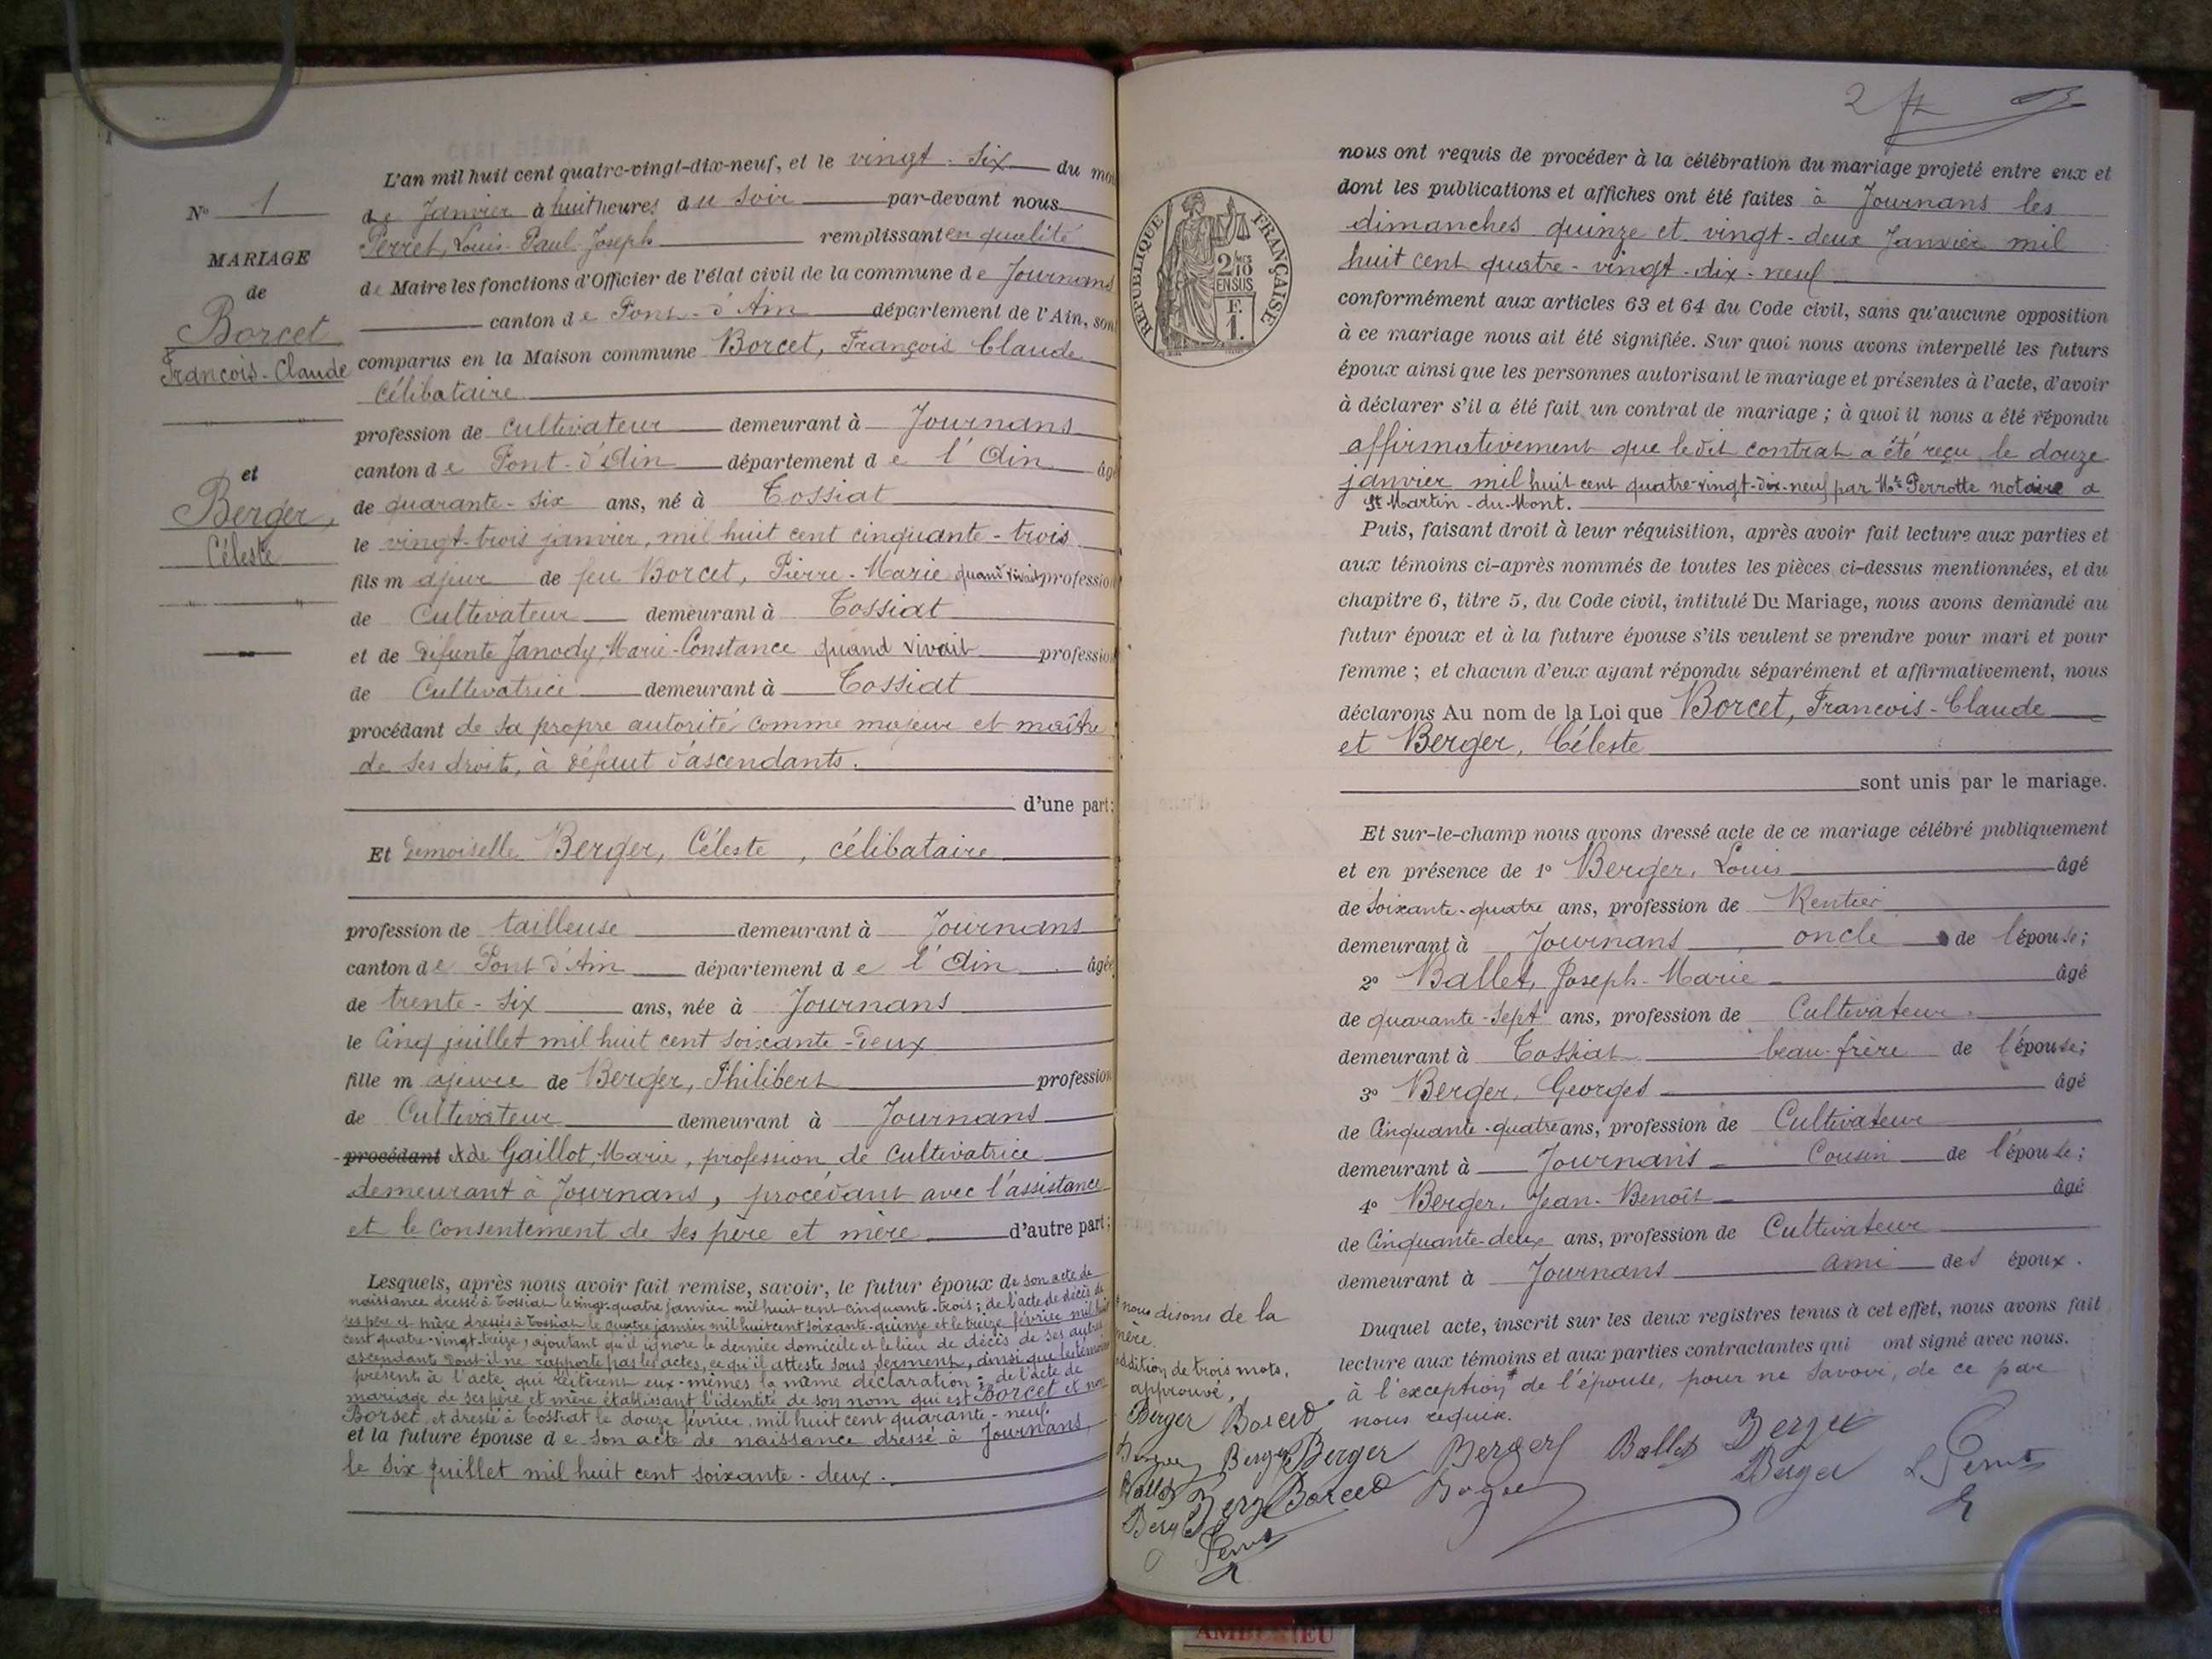 N° 1
MARIAGE
de
Borcet
François-Claude
et
Berger,
Céleste
L'an mil huit cent quatre-vingt-dix-neuf, et le vingt-six du mois
de Janvier à huit heures du soir par-devant nous
Perret, Louis-Paul-Joseph remplissant en qualité
de Maire les fonctions d'Officier de l'état civil de la commune de Journans
canton de Pont-d'Ain département de l'Ain, sont
comparus en la Maison commune Borcet, François Claude
célibataire
profession de cultivateur demeurant à Journans
canton de Pont-d'Ain département de l'Ain âgé
de quarante-six ans, né à Tossiat
le vingt-trois janvier, mil huit cent cinquante-trois
fils majeur de feu Borcet, Pierre-Marie quand vivait profession
de Cultivateur demeurant à Tossiat
et de défunte Janody, Marie-Constance quand vivait profession
de Cultivatrice demeurant à Tossiat
procédant de sa propre autorité comme majeur et maître
de ses droits, à défaut d'ascendants.
d'une part;
Et Demoiselle Berger, Céleste, célibataire
profession de tailleuse demeurant à Journans
canton de Pont d'Ain département de l'Ain âgée
de trente-six ans, née à Journans
le cinq juillet mil huit cent soixante-deux
fille majeure de Berger, Philibert profession
de Cultivateur demeurant à Journans
procédant et de Gaillot, Marie, profession de Cultivatrice
demeurant à Journans, procédant avec l'assistance
et le consentement de ses père et mère d'autre part;
Lesquels, après nous avoir fait remise, savoir, le futur époux de son acte de
naissance dressé à Tossiat le vingt-quatre janvier mil huit cent cinquante-trois; de l'acte de décès de
ses père et mère dressés à Tossiat le quatre janvier mil huit cent soixante-quinze et le treize février mil huit
cent quatre-vingt-treize, ajoutant qu'il ignore le dernier domicile et le lieu de décès de ses autres
ascendants dont il ne rapporte pas les actes, ce qu'il atteste sous serment, ainsi que les témoins
présents à l'acte, qui réitèrent eux-mêmes la même déclaration; de l'acte de
mariage de ses père et mère établissant l'identité de son nom qui est Borcet et non
Borset, et dressé à Tossiat le douze février, mil huit cent quarante-neuf.
et la future épouse de son acte de naissance dressé à Journans,
le six juillet mil huit cent soixante-deux.
2
RÉPUBLIQUE FRANÇAISE
2/10 EN SUS
F. 1.
nous ont requis de procéder à la célébration du mariage projeté entre eux et
dont les publications et affiches ont été faites à Journans les
dimanches quinze et vingt-deux Janvier mil
huit cent quatre-vingt-dix-neuf
conformément aux articles 63 et 64 du Code civil, sans qu'aucune opposition
à ce mariage nous ait été signifiée. Sur quoi nous avons interpellé les futurs
époux ainsi que les personnes autorisant le mariage et présentes à l'acte, d'avoir
à déclarer s'il a été fait un contrat de mariage; à quoi il nous a été répondu
affirmativement que ledit contrat a été reçu le douze
janvier mil huit cent quatre-vingt-dix-neuf par Me Perrotte notaire à
St Martin-du-Mont.
Puis, faisant droit à leur réquisition, après avoir fait lecture aux parties et
aux témoins ci-après nommés de toutes les pièces ci-dessus mentionnées, et du
chapitre 6, titre 5, du Code civil, intitulé Du Mariage, nous avons demandé au
futur époux et à la future épouse s'ils veulent se prendre pour mari et pour
femme; et chacun d'eux ayant répondu séparément et affirmativement, nous
déclarons Au nom de la Loi que Borcet, Francois-Claude
et Berger, Céleste
sont unis par le mariage.
Et sur-le-champ nous avons dressé acte de ce mariage célébré publiquement
et en présence de 1° Berger, Louis âgé
de soixante-quatre ans, profession de Rentier
demeurant à Journans oncle de l'épouse;
2° Ballet, Joseph-Marie âgé
de quarante-sept ans, profession de Cultivateur
demeurant à Tossiat beau-frère de l'épouse;
3° Berger, Georges âgé
de Cinquante-quatre ans, profession de Cultivateur
demeurant à Journans Cousin de l'épouse;
4° Berger, Jean-Benoît âgé
de Cinquante-deux ans, profession de Cultivateur
demeurant à Journans ami des époux.
Duquel acte, inscrit sur les deux registres tenus à cet effet, nous avons fait
lecture aux témoins et aux parties contractantes qui ont signé avec nous.
à l'exception de l'épouse, pour ne savoir, de ce par
nous requise.
nous disons de la
mère.
addition de trois mots,
approuvé,
Berger Borced
Berger Berger
Berger Ballet Berger
Berger
Ballet Berger Borced
L. Perret
Perret
AMBERIEU